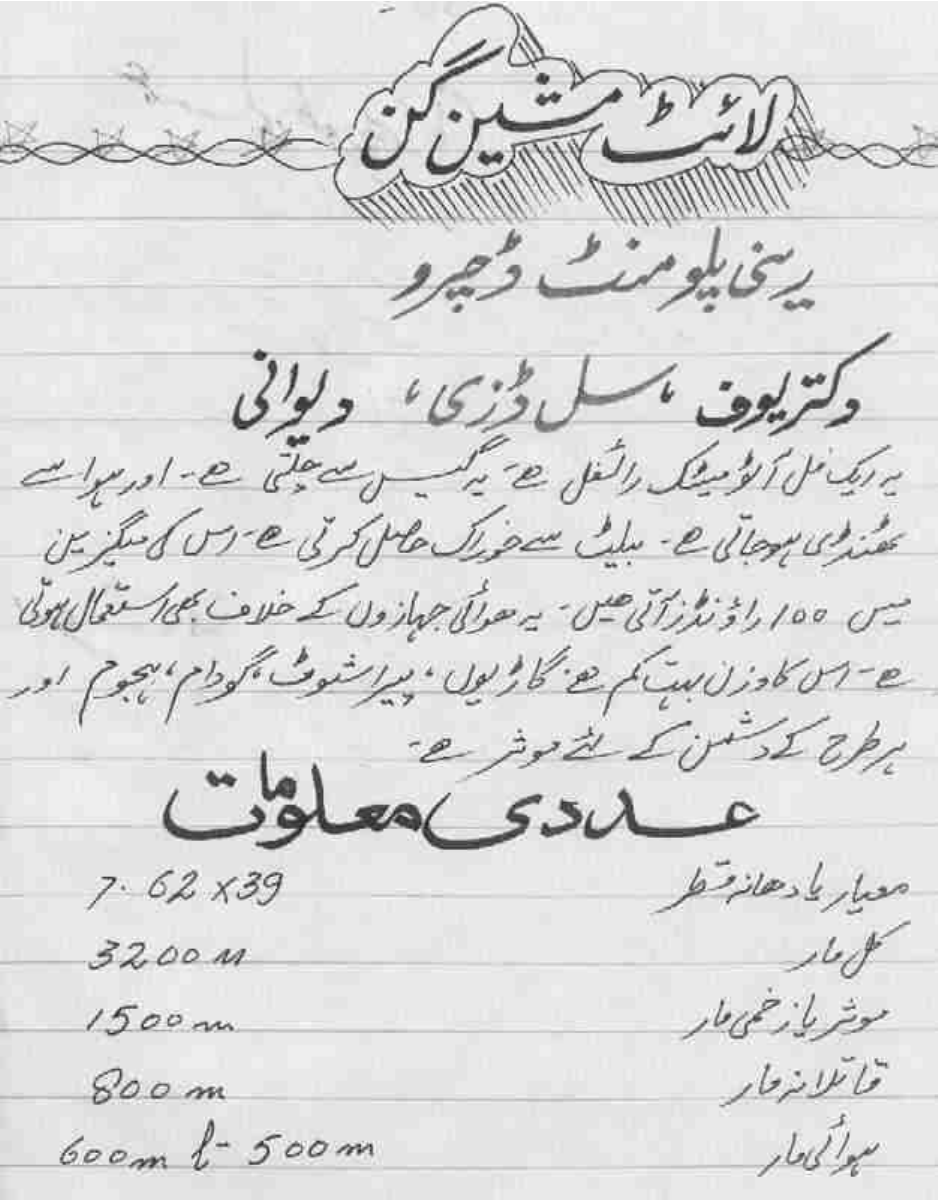 لائٹ مشین گن
رینی پلومنٹ ڈچپرو
دکتریوف، سل ڈزی، دیوانی
یہ ایک فل آٹومیٹک رائفل ھے۔ یہ گیس سے چلتی ھے۔ اور ہوا سے
ٹھنڈی ہوجاتی ھے۔ بیلٹ سے خوراک حاصل کرتی ھے۔ اس کی میگزین
میں 100 راؤنڈز آتی ھیں۔ یہ ھوائی جہازوں کے خلاف بھی استعمال ہوتی
ھے۔ اس کا وزن بہت کم ھے۔ گاڑیوں، پیراشوٹ، گودام، ہجوم اور
ہر طرح کے دشمن کے لئے موثر ھے۔
عددی معلومات
معیار یا دھانہ قطر 7.62 x39
کل مار 3200 m
موثر یا زخمی مار 1500 m
قاتلانہ مار 800 m
ہوائی مار 500m تا 600m